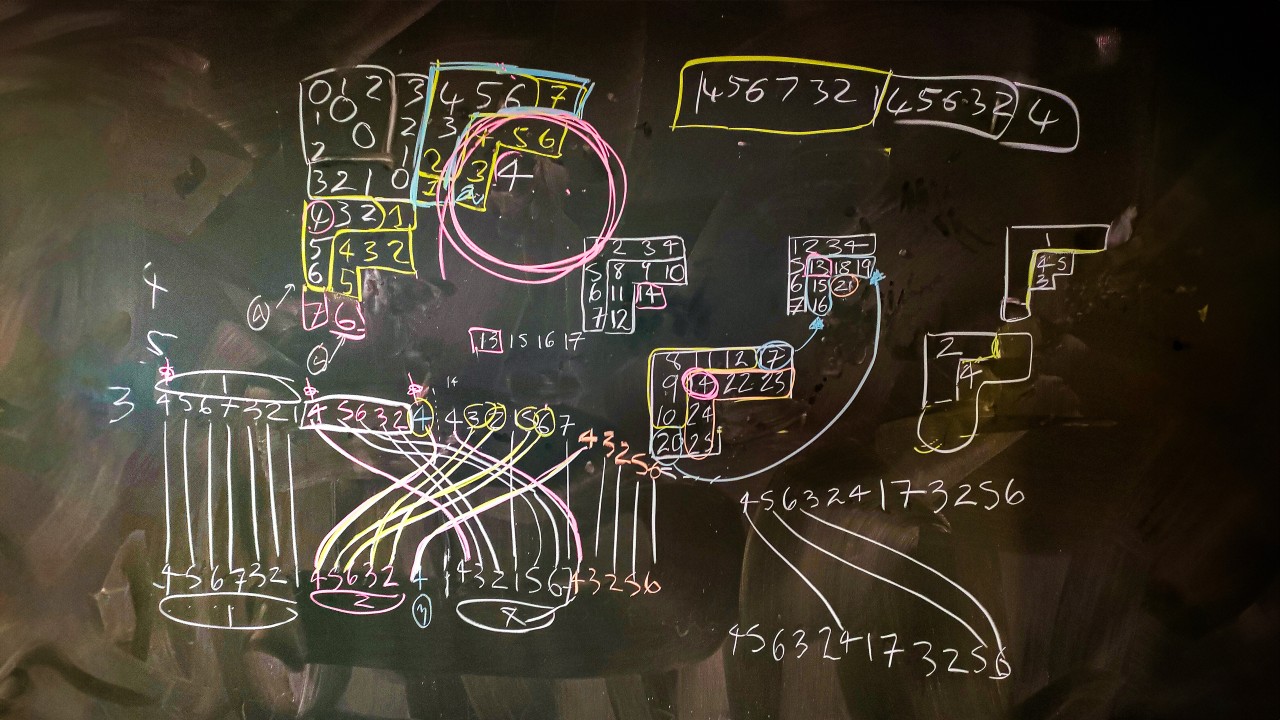 0 1 2 3 4 5 6 7
1 0 2 3 4 5 6
2 0 1 2 3 4
3 2 1 0 1 2
4 3 2 1
5 4 3 2
6 5
7 6
4567321 45632 4
1 2 3 4
5 8 9 10
6 11 14
7 12
13 15 16 17
1 2 3 4
5 13 18 19
6 15 21
7 16
8 11 12 17
9 14 22 23
10 24
20 25
1
4 5
3
2
4
4
5
3
1
4567321 45632 4 14 432 1567
43256
4567321 45632 4 1432 1567 43256
1 2 3
4563241 73256
4563241 73256